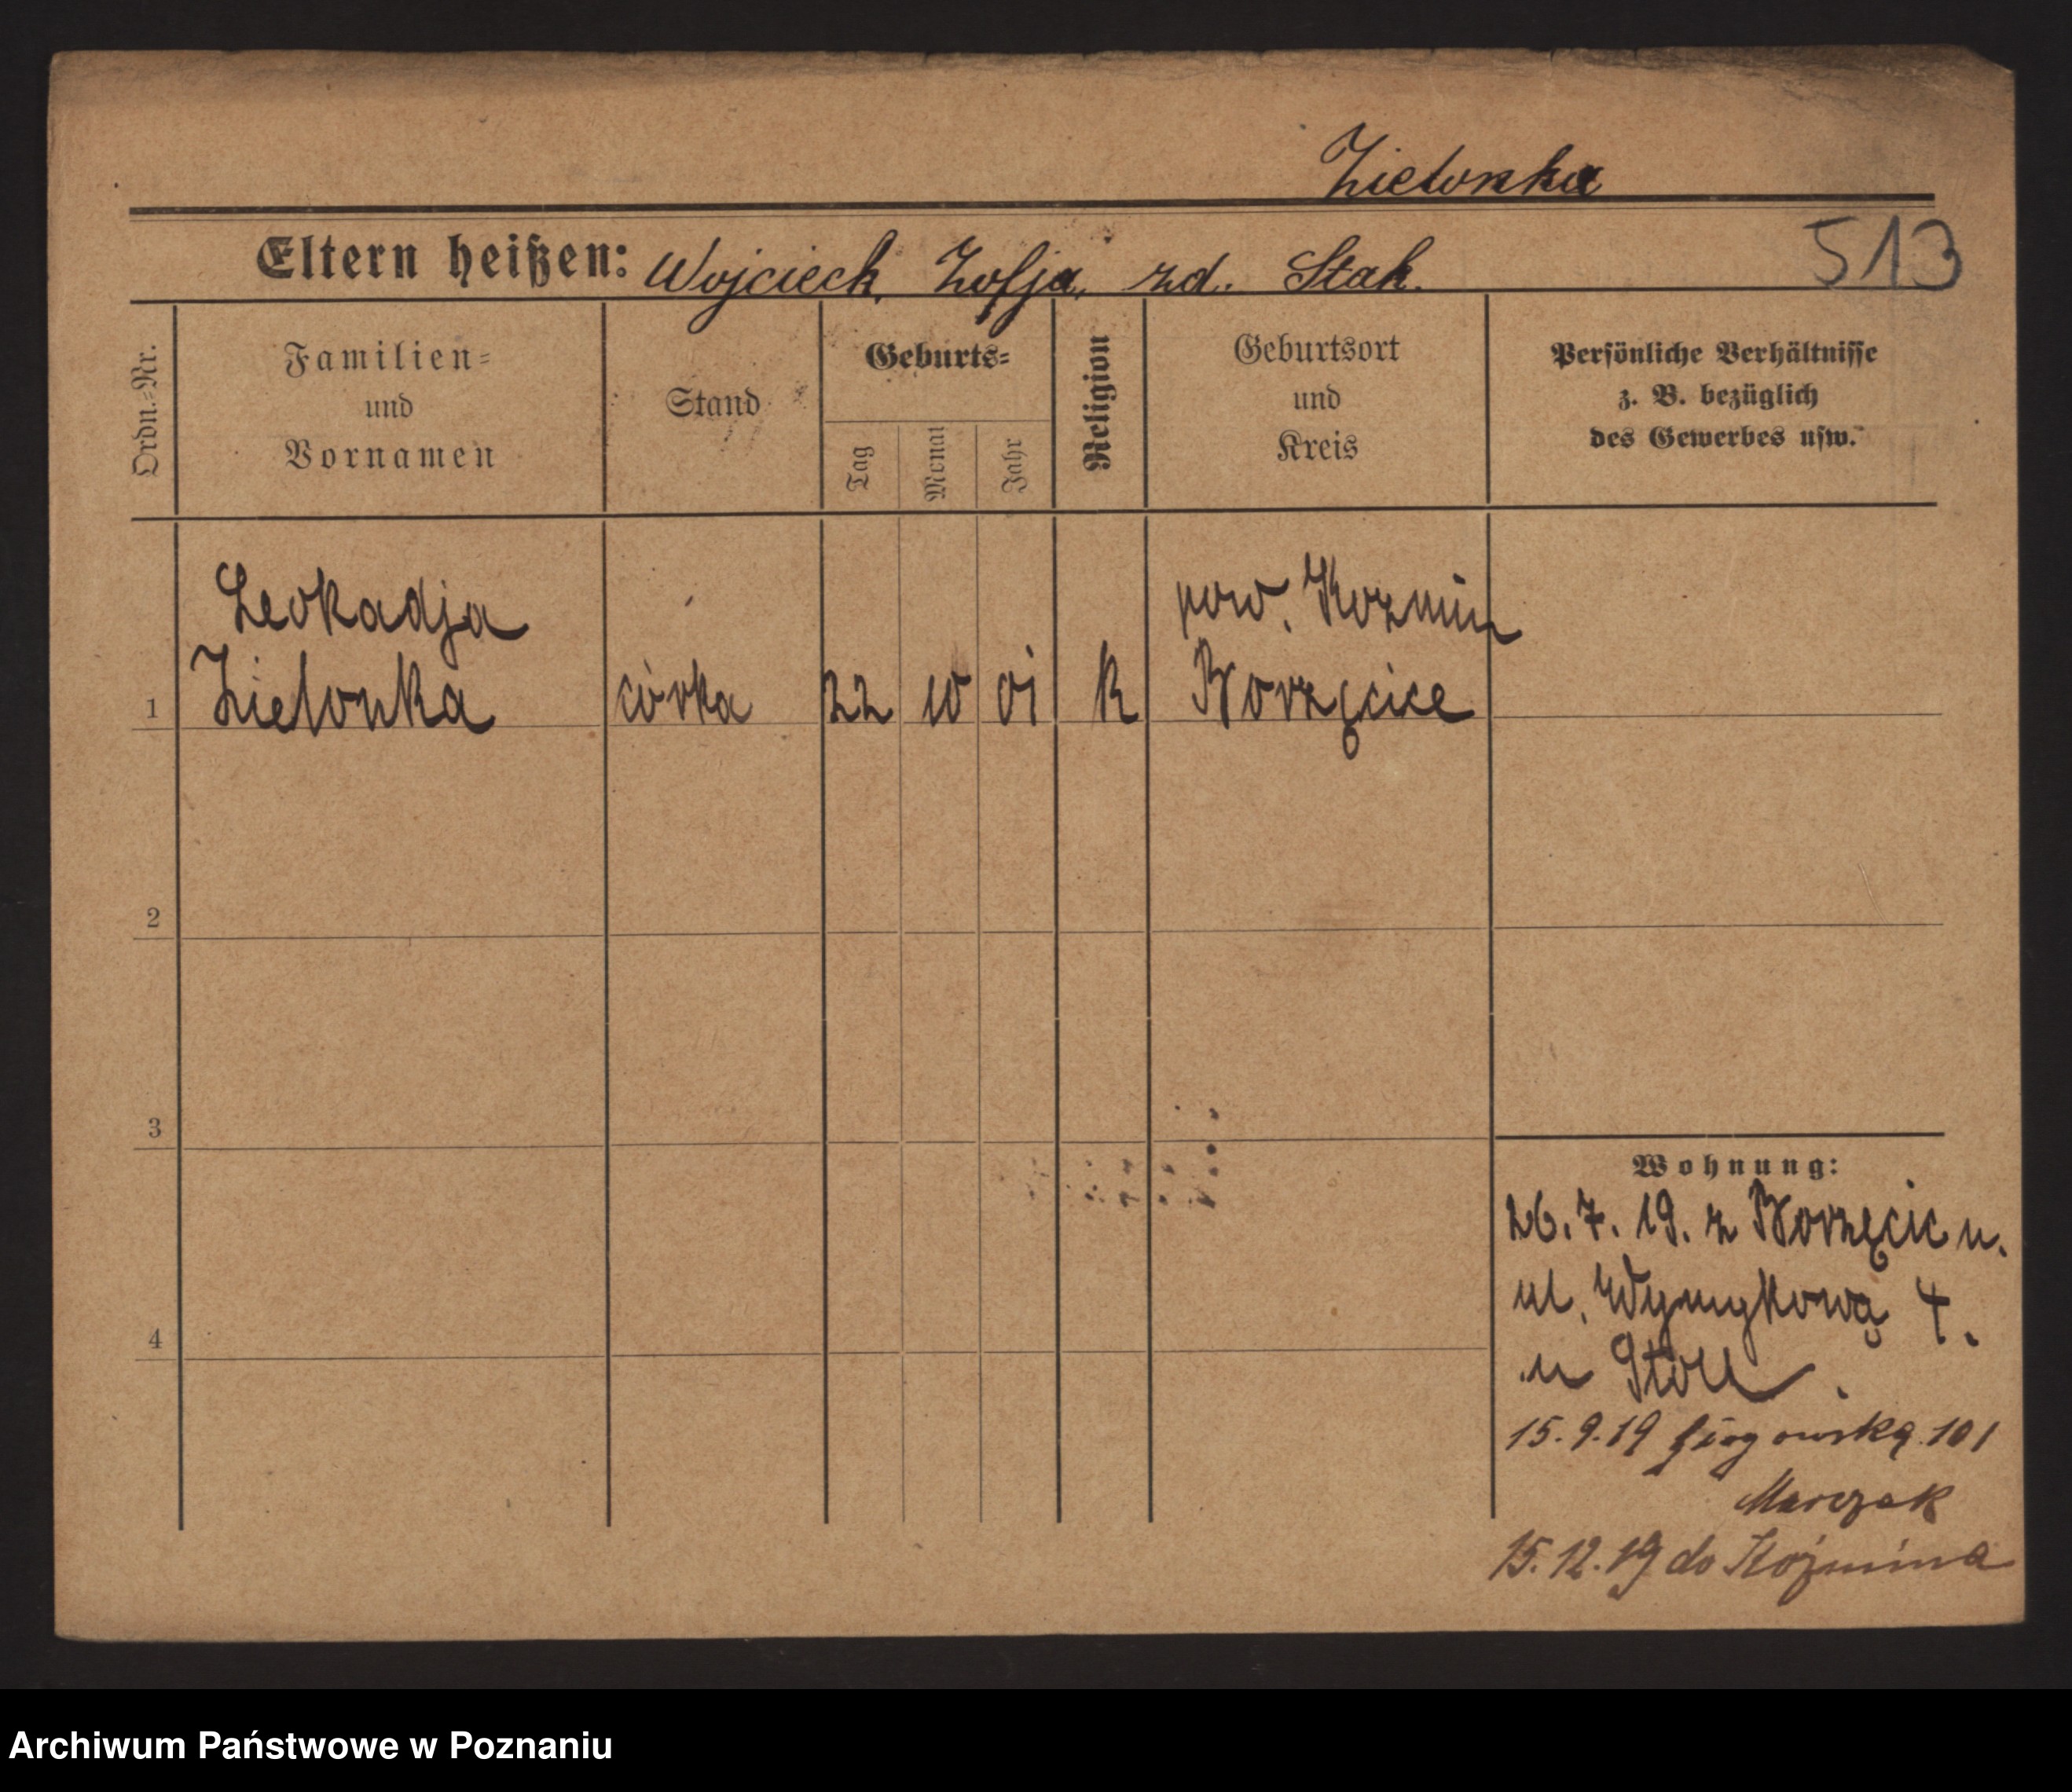 Zielonka
513
Eltern heißen: Wojciech, Zofja, zd. Stak.
Ordn.-Nr.
Familien-
und
Vornamen
Stand
Geburts-
Tag
Monat
Jahr
Religion
Geburtsort
und
Kreis
Persönliche Verhältnisse
z. B. bezüglich
des Gewerbes usw.
Leokadja
pow. Kozmin
1 Zielonka córka 22 10 01 k Borzęcice
2
3
4
Wohnung:
26. 7. 19. z Borzęcic u.
ul. 4.
u Stoll.
15. 9. 19 101
Marczak
15. 12. 19 do Koźmina
Archiwum Państwowe w Poznaniu